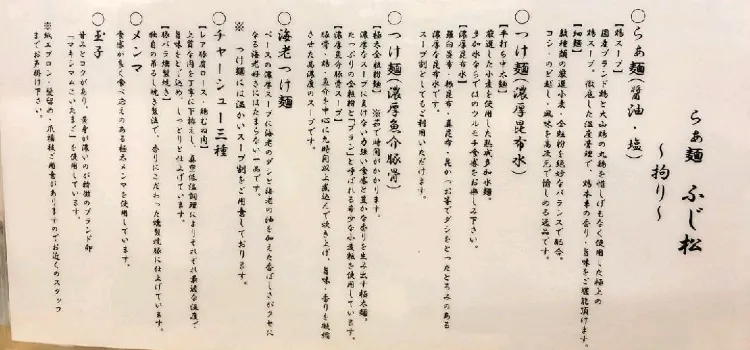 らぁ麺 ふじ松
〜拘り〜
○らぁ麺(醤油・塩)
【鶏スープ】
国産ブランド鶏と大山鶏の丸鶏を惜しげもなく使用した極上の
鶏スープ。徹底した温度管理で、鶏本来の香り・旨味をご堪能頂けます。
【細麺】
数種類の厳選小麦・全粒粉を絶妙なバランスで配合。
コシ・のど越し・風味を高次元で愉しめる逸品です。
○つけ麺(濃厚昆布水)
【平打ち中太麺】
厳選した小麦を使用した熟成多加水麺。
多加水ならではのツルモチ食感をお楽しみ下さい。
【濃厚昆布水】
羅臼昆布・根昆布・真昆布・昆かつお等でダシをとったとろみのある
濃厚な昆布水です。
スープ割としてもご利用いただけます。
○つけ麺(濃厚魚介豚骨)
【極太全粒粉麺】※茹で時間がかかります。
濃厚なスープに負けない力強い食感と豊かな香りを生み出す極太麺。
たっぷりの全粒粉と「ブラン」と呼ばれる希少な小麦粒を使用しています。
【濃厚魚介豚骨スープ】
豚骨・鶏・魚介を中心に九時間以上煮込んで炊き上げ、旨味・香りを凝縮
させた高濃度のスープです。
○海老つけ麺
ベースの濃厚スープに海老のダシと海老の油を加えた香ばしさがクセに
なる海老好きにはたまらない一品です。
※ つけ麺には温かいスープ割をご用意しております。
○チャーシュー三種
【レア豚肩ロース・鶏むね肉】
上質な肉を丁寧に下拵えし、真空低温調理によりそれぞれ最適な温度で
旨味をとじ込め、しっとり仕上げています。
【豚バラ燻製焼き】
独自の吊るし焼き製法で、香りにこだわった燻製焼豚に仕上げています。
○メンマ
食感が良く食べ応えのある極太メンマを使用しています。
○玉子
甘みとコクがあり、黄身が濃いのが特徴のブランド卵
「マキシマムこいたまご」を使用しています。
※紙エプロン・髪留め・爪楊枝ご用意がありますのでお近くのスタッフ
までお声掛け下さい。